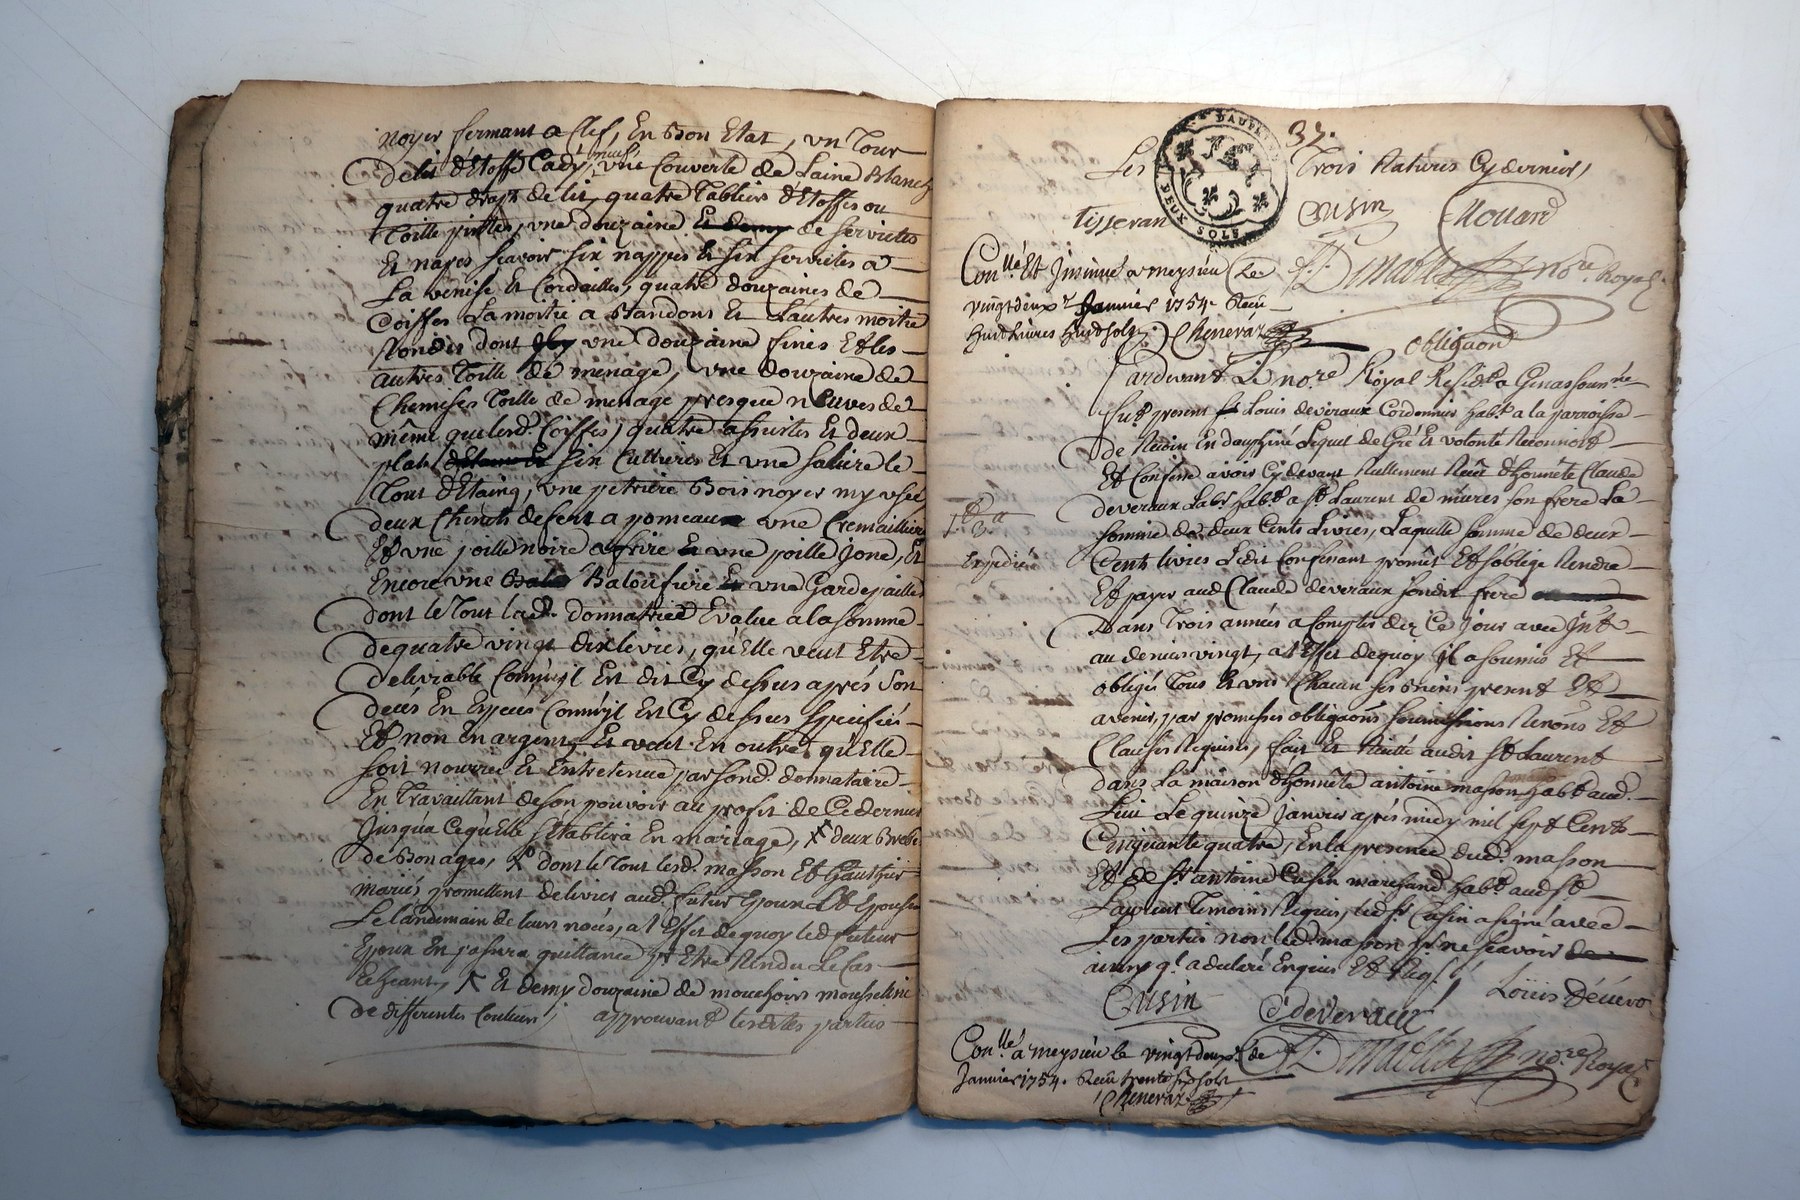 noyer fermant a Clef, En Bon Etat, vn Tour
de lit d'Etoffe Cady, neuf vne Couverte de Laine Blanch
quatre drapt de lit, quatre Tabliers d'Etoffes ou
Toille peintes, vne douzaine Et demy de serviettes
Et napes scavoir six nappes Et six servietes a
La venise Et Cordailles, quatre douzaines de
Coiffes La moitié a Bandons Et Lautres moitié
Rondes dont vne douzaine fines Et les
autres Toille de menage, vne douzaine de
Chemises Toille de menage presque neuves de
même que lesd. Coiffes, quatre assiettes Et deux
plats d'Etain Et six Cullieres Et vne saliere le
Tout d'Etaing, vne petriere Bois noyer my vsée
deux Chenets de fert a pomeaux vne Cremailliere
Et vne poille noire a frire Et vne poille jone, Et
Encore vne Baloufriere Et vne Gardepaille
dont le Tout lad. donnatrice Evalue a la somme
de quatre vingt dix livres, qu'Elle veut Etre
delivrable Comm'jl Est dit Cy dessus aprés son
décés En Especes Comm'jl Est Cy dessus specifiés
Et non En argent, Et veut En outre qu'Elle
soit nourrie Et Entretenue par sond. donnataire
En Travaillant de son pouvoir au profit de Ce dernier
Jusqu'a Cequ'Elle s'Etablira En mariage, X deux Brebis
de Bon ages, X dont le Tout lesd. masson Et Gauthier
mariés promettent delivrer aud. futur Epoux Et Epouse
Le landemain de leurs noces, a l'Effet de quoy led. futeur
Epoux En passera quittance pr Etre Rendu Le Cas
Echeant, X Et demy douzaine de mouchoirs mousseline
de differentes Couleurs, approuvant lesdites parties
37.
DAUPHINÉ
DEUX SOLS
Les Trois Ratures Cy dernier,
Tisseran Cusin Clouard
Con.llé Et Jnsinué a meysieu Le
vingtdeux Janvier 1754. Reçu
huit livres huit sols. Cheneraz
nore. Royal
obligaon
Pardevant Le nore. Royal Resid.t a Genas soub.né
fut present Louis deveraux Cordonnier habt. a la parroisse
de Ruoin En dauphiné Lequel de Gré Et volonté Reconnoit
Et Confesse avoir Cy devant Reellement Reçû d'honnête Claude
deveraux Labr. habt. a St. Laurent de mures son frere La
somme de deux Cents Livres, Laquelle somme de deux
Cents livres Ledit Confessant promet Et s'oblige Rendre
Et payer aud. Claude deveraux sondit frere
Dans Trois années a Compter dez Ce jour avec Jnt.
au denier vingt, a l'Effet de quoy jl a soumis Et
obligés Tous Et vns Chacun ses Biens present Et
avenir, par promesses obligaons soumissions Renons Et
Clauses Requises, fait Et Recitté audit St. Laurent
dans La maison d'honnête antoine masson habt. aud.
Lieu Le quinze Janvier aprés midy mil sept Cents
Cinquante quatre, En la presence dud. masson
Et de Sr. antoine Cusin marchand habt. aud. St.
Laurent Temoins Requis, led. Sr. Cusin a signé avec
Les parties non led. masson pr. ne scavoir de
ainsy ql. a declaré Enquis Et Req.
Expedié
Cusin C deveraux Loüis Déuero
Con.llé a meysieu le vingtdeux de
Janvier 1754. Reçu trente six sols
Cheneraz
nore. Royal